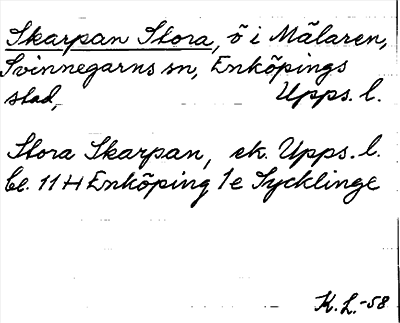 Skarpan Stora, ö i Mälaren,
Svinnegarns sn, Enköpings
stad, Upps. l.
Stora Skarpan, ek. Upps. l.
bl. 11 H Enköping 1e Sycklinge
K. L. -58